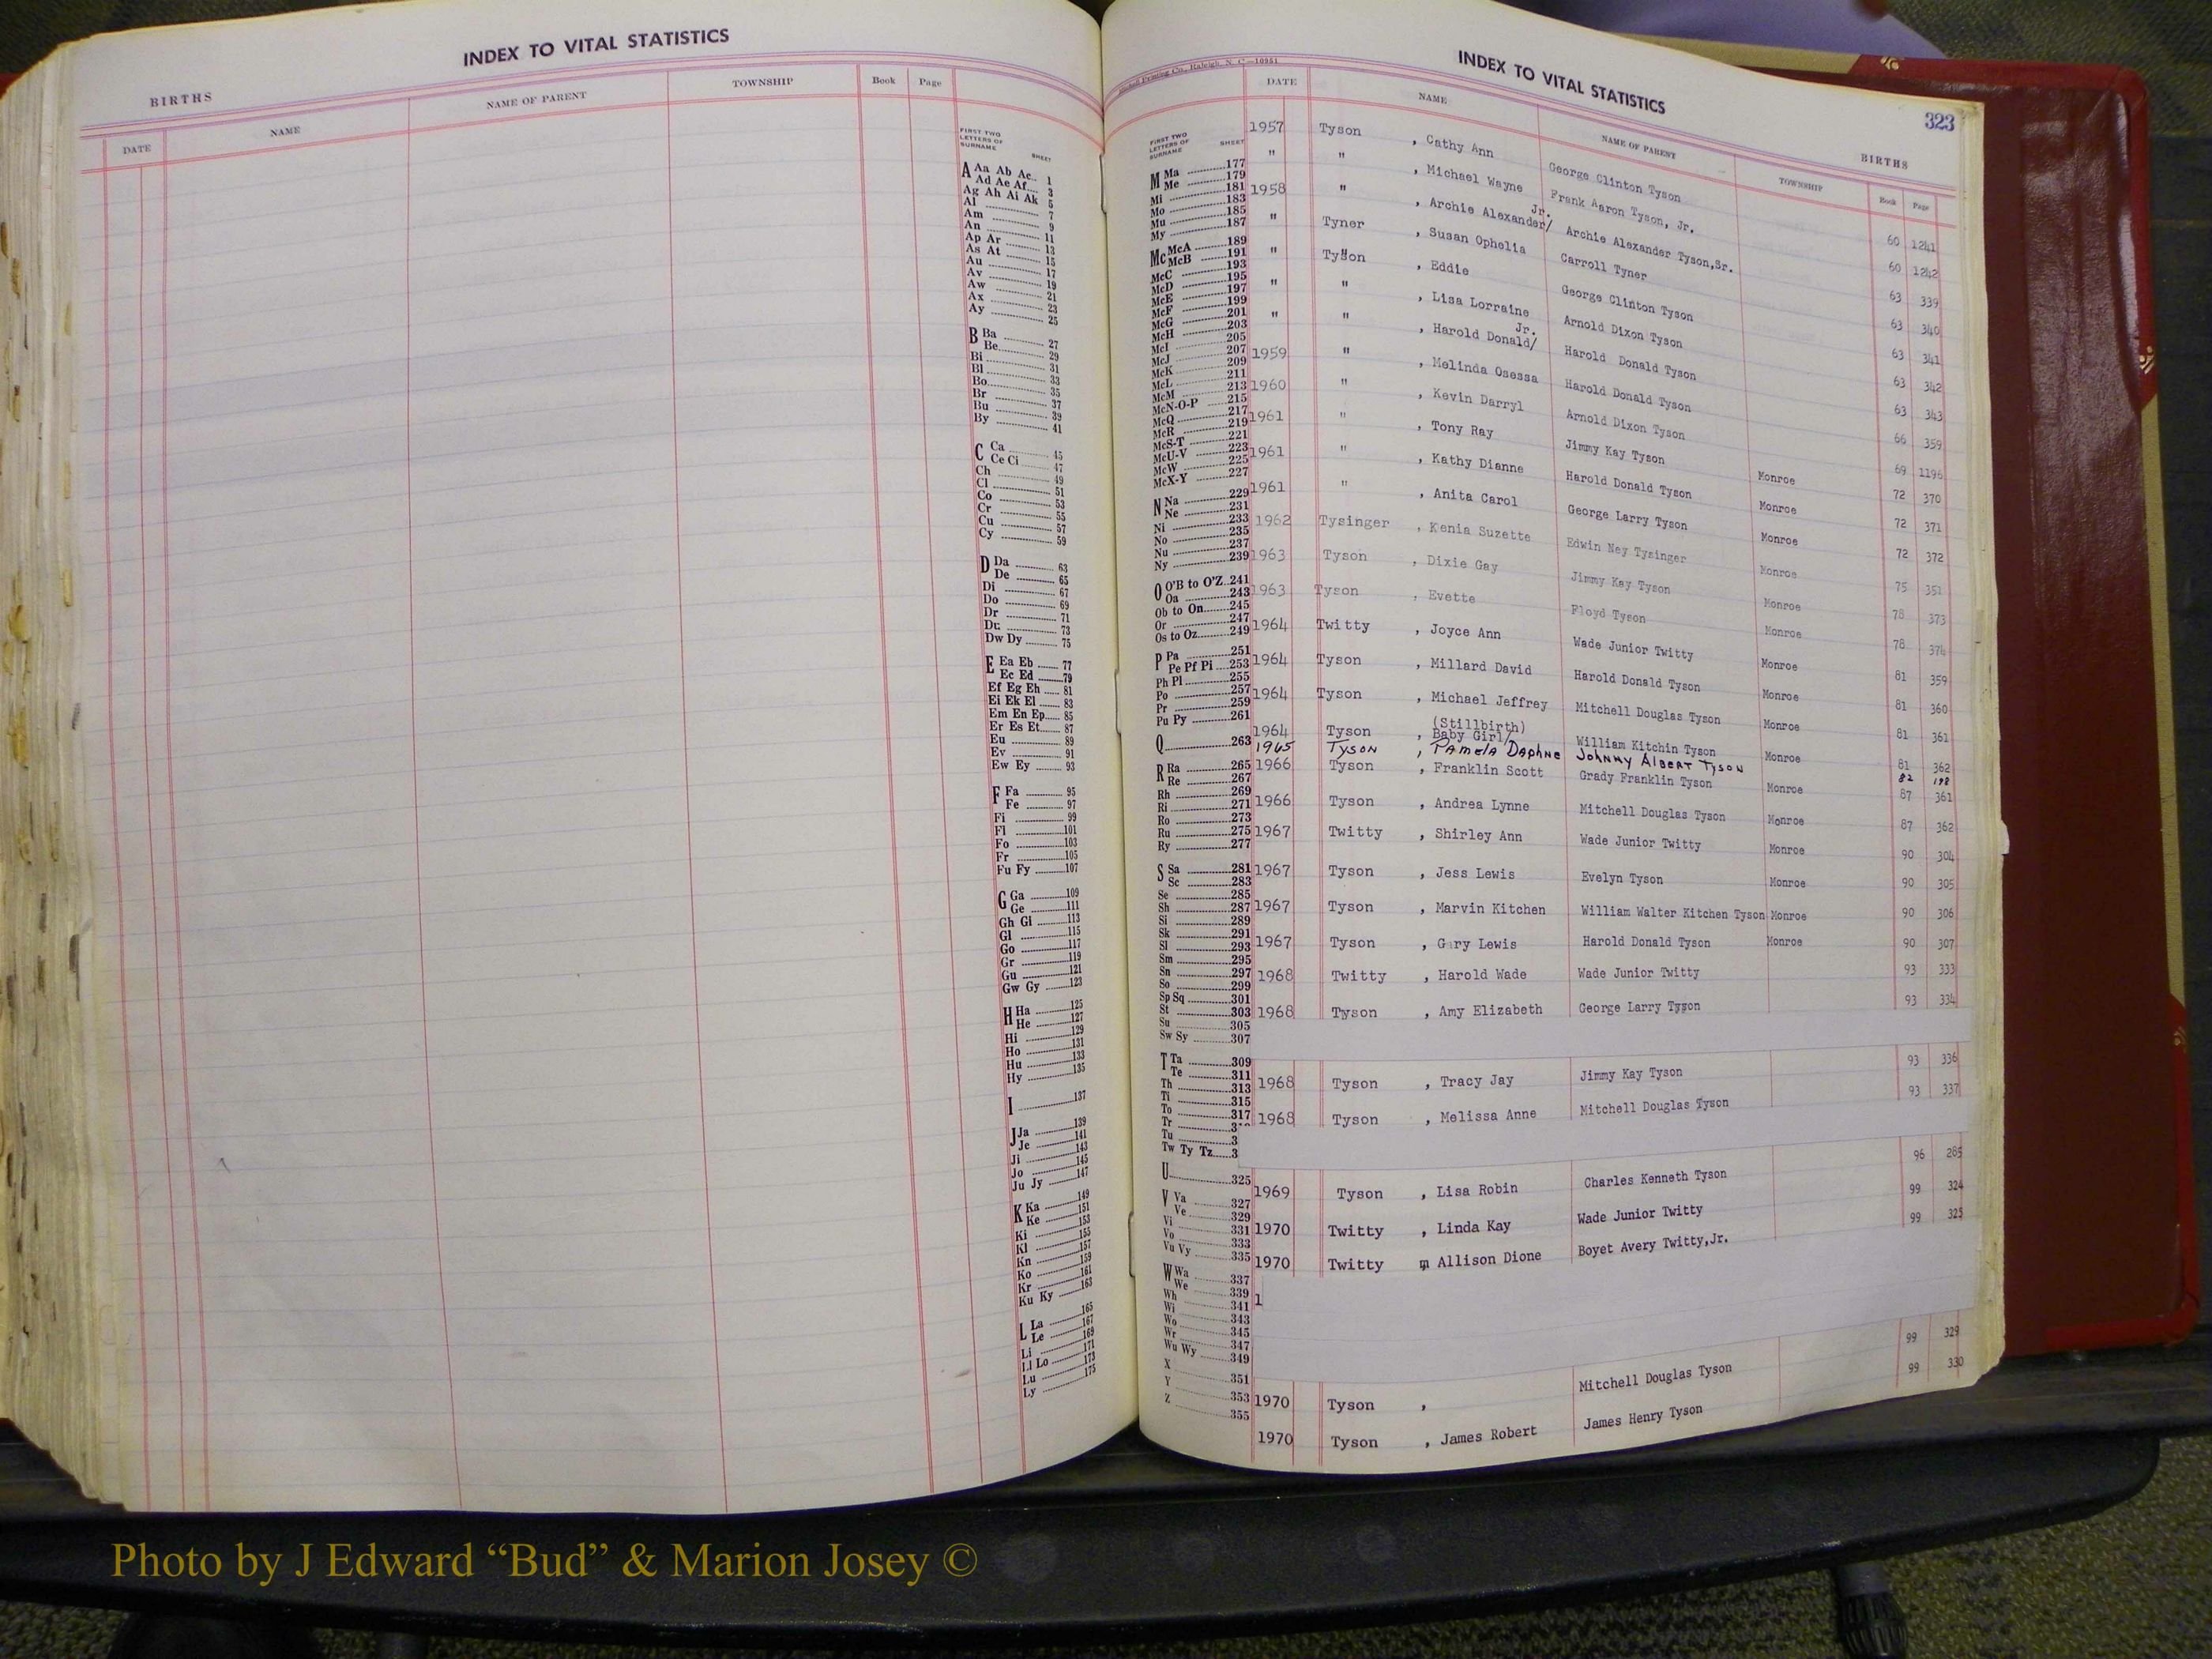 INDEX TO VITAL STATISTICS
BIRTHS
DATE NAME NAME OF PARENT TOWNSHIP Book Page
FIRST TWO
LETTERS OF
SURNAME SHEET
A Aa Ab Ac.. 1
Ad Ae Af.... 3
Ag Ah Ai Ak 5
Al 7
Am 9
An 11
Ap Ar 13
As At 15
Au 17
Av 19
Aw 21
Ax 23
Ay 25
B Ba 27
Be 29
Bi 31
Bl 33
Bo 35
Br 37
Bu 39
By 41
C Ca 45
Ce Ci 47
Ch 49
Cl 51
Co 53
Cr 55
Cu 57
Cy 59
D Da 63
De 65
Di 67
Do 69
Dr 71
Du 73
Dw Dy 75
E Ea Eb 77
Ec Ed 79
Ef Eg Eh 81
Ei Ek El 83
Em En Ep 85
Er Es Et 87
Eu 89
Ev 91
Ew Ey 93
F Fa 95
Fe 97
Fi 99
Fl 101
Fo 103
Fr 105
Fu Fy 107
G Ga 109
Ge 111
Gh Gi 113
Gl 115
Go 117
Gr 119
Gu 121
Gw Gy 123
H Ha 125
He 127
Hi 129
Ho 131
Hu 133
Hy 135
I 137
J Ja 139
Je 141
Ji 143
Jo 145
Ju Jy 147
K Ka 149
Ke 151
Ki 153
Kl 155
Kn 157
Ko 159
Kr 161
Ku Ky 163
L La 165
Le 167
Li 169
Ll Lo 171
Lu 173
Ly 175
Printing Co., Raleigh, N. C.—10951
INDEX TO VITAL STATISTICS
323
BIRTHS
DATE NAME NAME OF PARENT TOWNSHIP Book Page
FIRST TWO
LETTERS OF
SURNAME SHEET
M Ma 177
Me 179
Mi 181
Mo 183
Mu 185
My 187
Mc McA 189
McB 191
McC 193
McD 195
McE 197
McF 199
McG 201
McH 203
McI 205
McJ 207
McK 209
McL 211
McM 213
McN-O-P 215
McQ 217
McR 219
McS-T 221
McU-V 223
McW 225
McX-Y 227
N Na 229
Ne 231
Ni 233
No 235
Nu 237
Ny 239
O O'B to O'Z..241
Oa 243
Ob to On 245
Or 247
Os to Oz 249
P Pa 251
Pe Pf Pi 253
Ph Pl 255
Po 257
Pr 259
Pu Py 261
Q 263
R Ra 265
Re 267
Rh 269
Ri 271
Ro 273
Ru 275
Ry 277
S Sa 281
Sc 283
Se 285
Sh 287
Si 289
Sk 291
Sl 293
Sm 295
Sn 297
So 299
Sp Sq 301
St 303
Su 305
Sw Sy 307
T Ta 309
Te 311
Th 313
Ti 315
To 317
Tr 3
Tu 3
Tw Ty Tz 3
U 325
V Va 327
Ve 329
Vi 331
Vo 333
Vu Vy 335
W Wa 337
We 339
Wh 341
Wi 343
Wo 345
Wr 347
Wu Wy 349
X 351
Y 353
Z 355
1957 Tyson , Cathy Ann George Clinton Tyson 60 1241
" " , Michael Wayne Frank Aaron Tyson, Jr. 60 1242
1958 " , Archie Alexander/ Jr. Archie Alexander Tyson,Sr. 63 339
" Tyner , Susan Ophelia Carroll Tyner 63 340
" Tyson , Eddie George Clinton Tyson 63 341
" " , Lisa Lorraine Arnold Dixon Tyson 63 342
" " , Harold Donald/ Jr. Harold Donald Tyson 63 343
1959 " , Melinda Osessa Harold Donald Tyson 66 359
1960 " , Kevin Darryl Arnold Dixon Tyson 69 1196
1961 " , Tony Ray Jimmy Kay Tyson Monroe 72 370
1961 " , Kathy Dianne Harold Donald Tyson Monroe 72 371
1961 " , Anita Carol George Larry Tyson Monroe 72 372
1962 Tysinger , Kenia Suzette Edwin Ney Tysinger Monroe 75 351
1963 Tyson , Dixie Gay Jimmy Kay Tyson Monroe 78 373
1963 Tyson , Evette Floyd Tyson Monroe 78 374
1964 Twitty , Joyce Ann Wade Junior Twitty Monroe 81 359
1964 Tyson , Millard David Harold Donald Tyson Monroe 81 360
1964 Tyson , Michael Jeffrey Mitchell Douglas Tyson Monroe 81 361
1964 Tyson , Baby Girl/ (Stillbirth) William Kitchin Tyson Monroe 81 362
1965 Tyson , Pamela Daphne Johnny Albert Tyson 82 198
1966 Tyson , Franklin Scott Grady Franklin Tyson Monroe 87 361
1966 Tyson , Andrea Lynne Mitchell Douglas Tyson Monroe 87 362
1967 Twitty , Shirley Ann Wade Junior Twitty Monroe 90 304
1967 Tyson , Jess Lewis Evelyn Tyson Monroe 90 305
1967 Tyson , Marvin Kitchen William Walter Kitchen Tyson Monroe 90 306
1967 Tyson , Gary Lewis Harold Donald Tyson Monroe 90 307
1968 Twitty , Harold Wade Wade Junior Twitty 93 333
1968 Tyson , Amy Elizabeth George Larry Tyson 93 334
1968 Tyson , Tracy Jay Jimmy Kay Tyson 93 336
1968 Tyson , Melissa Anne Mitchell Douglas Tyson 93 337
1969 Tyson , Lisa Robin Charles Kenneth Tyson 96 285
1970 Twitty , Linda Kay Wade Junior Twitty 99 324
1970 Twitty , Allison Dione Boyet Avery Twitty,Jr. 99 325
1
1970 Tyson , Mitchell Douglas Tyson 99 329
1970 Tyson , James Robert James Henry Tyson 99 330
Photo by J Edward “Bud” & Marion Josey ©